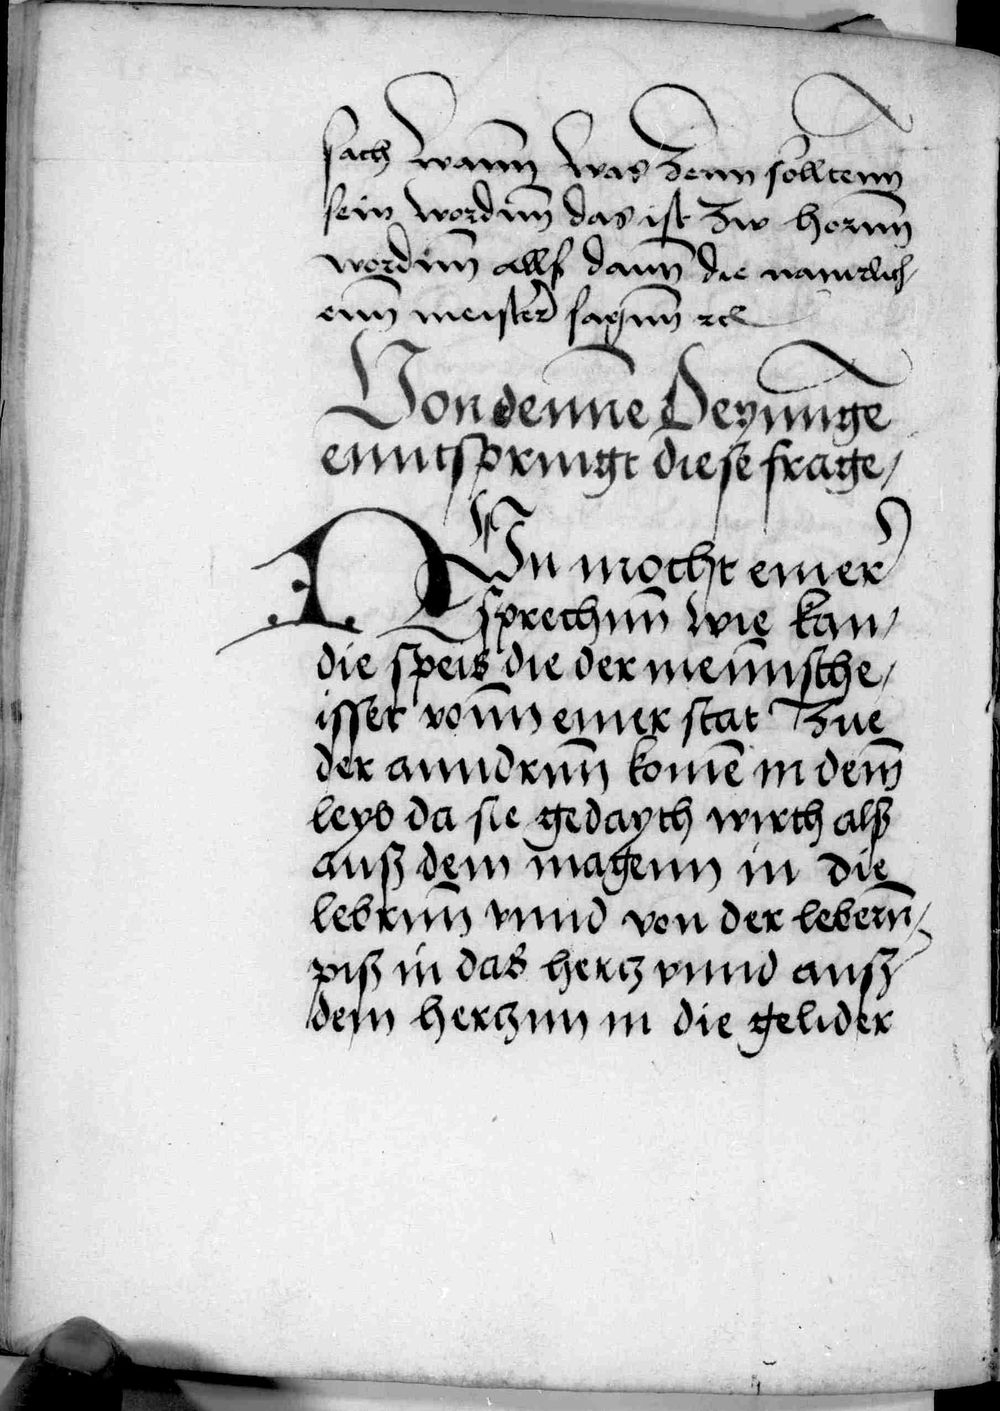 sach wann was zenn solltenn
sein wordnn das ist zw hornn
wordnn allß dann die naturlich-
enn meister sagnn ꝛc
Von denne Deyunge
enntspringt diese frage/
NUn mocht einer
sprechnn wie kan/
die speis die der mennsche/
isset vonn einer stat Zue
der anndrnn komē in dem̄
leyb da sie gedayth wirth alß
auß dem magenn in die
lebrnn vnnd von der lebern̄/
piß in das hertz vnnd auß
dem hertznn in die gelider